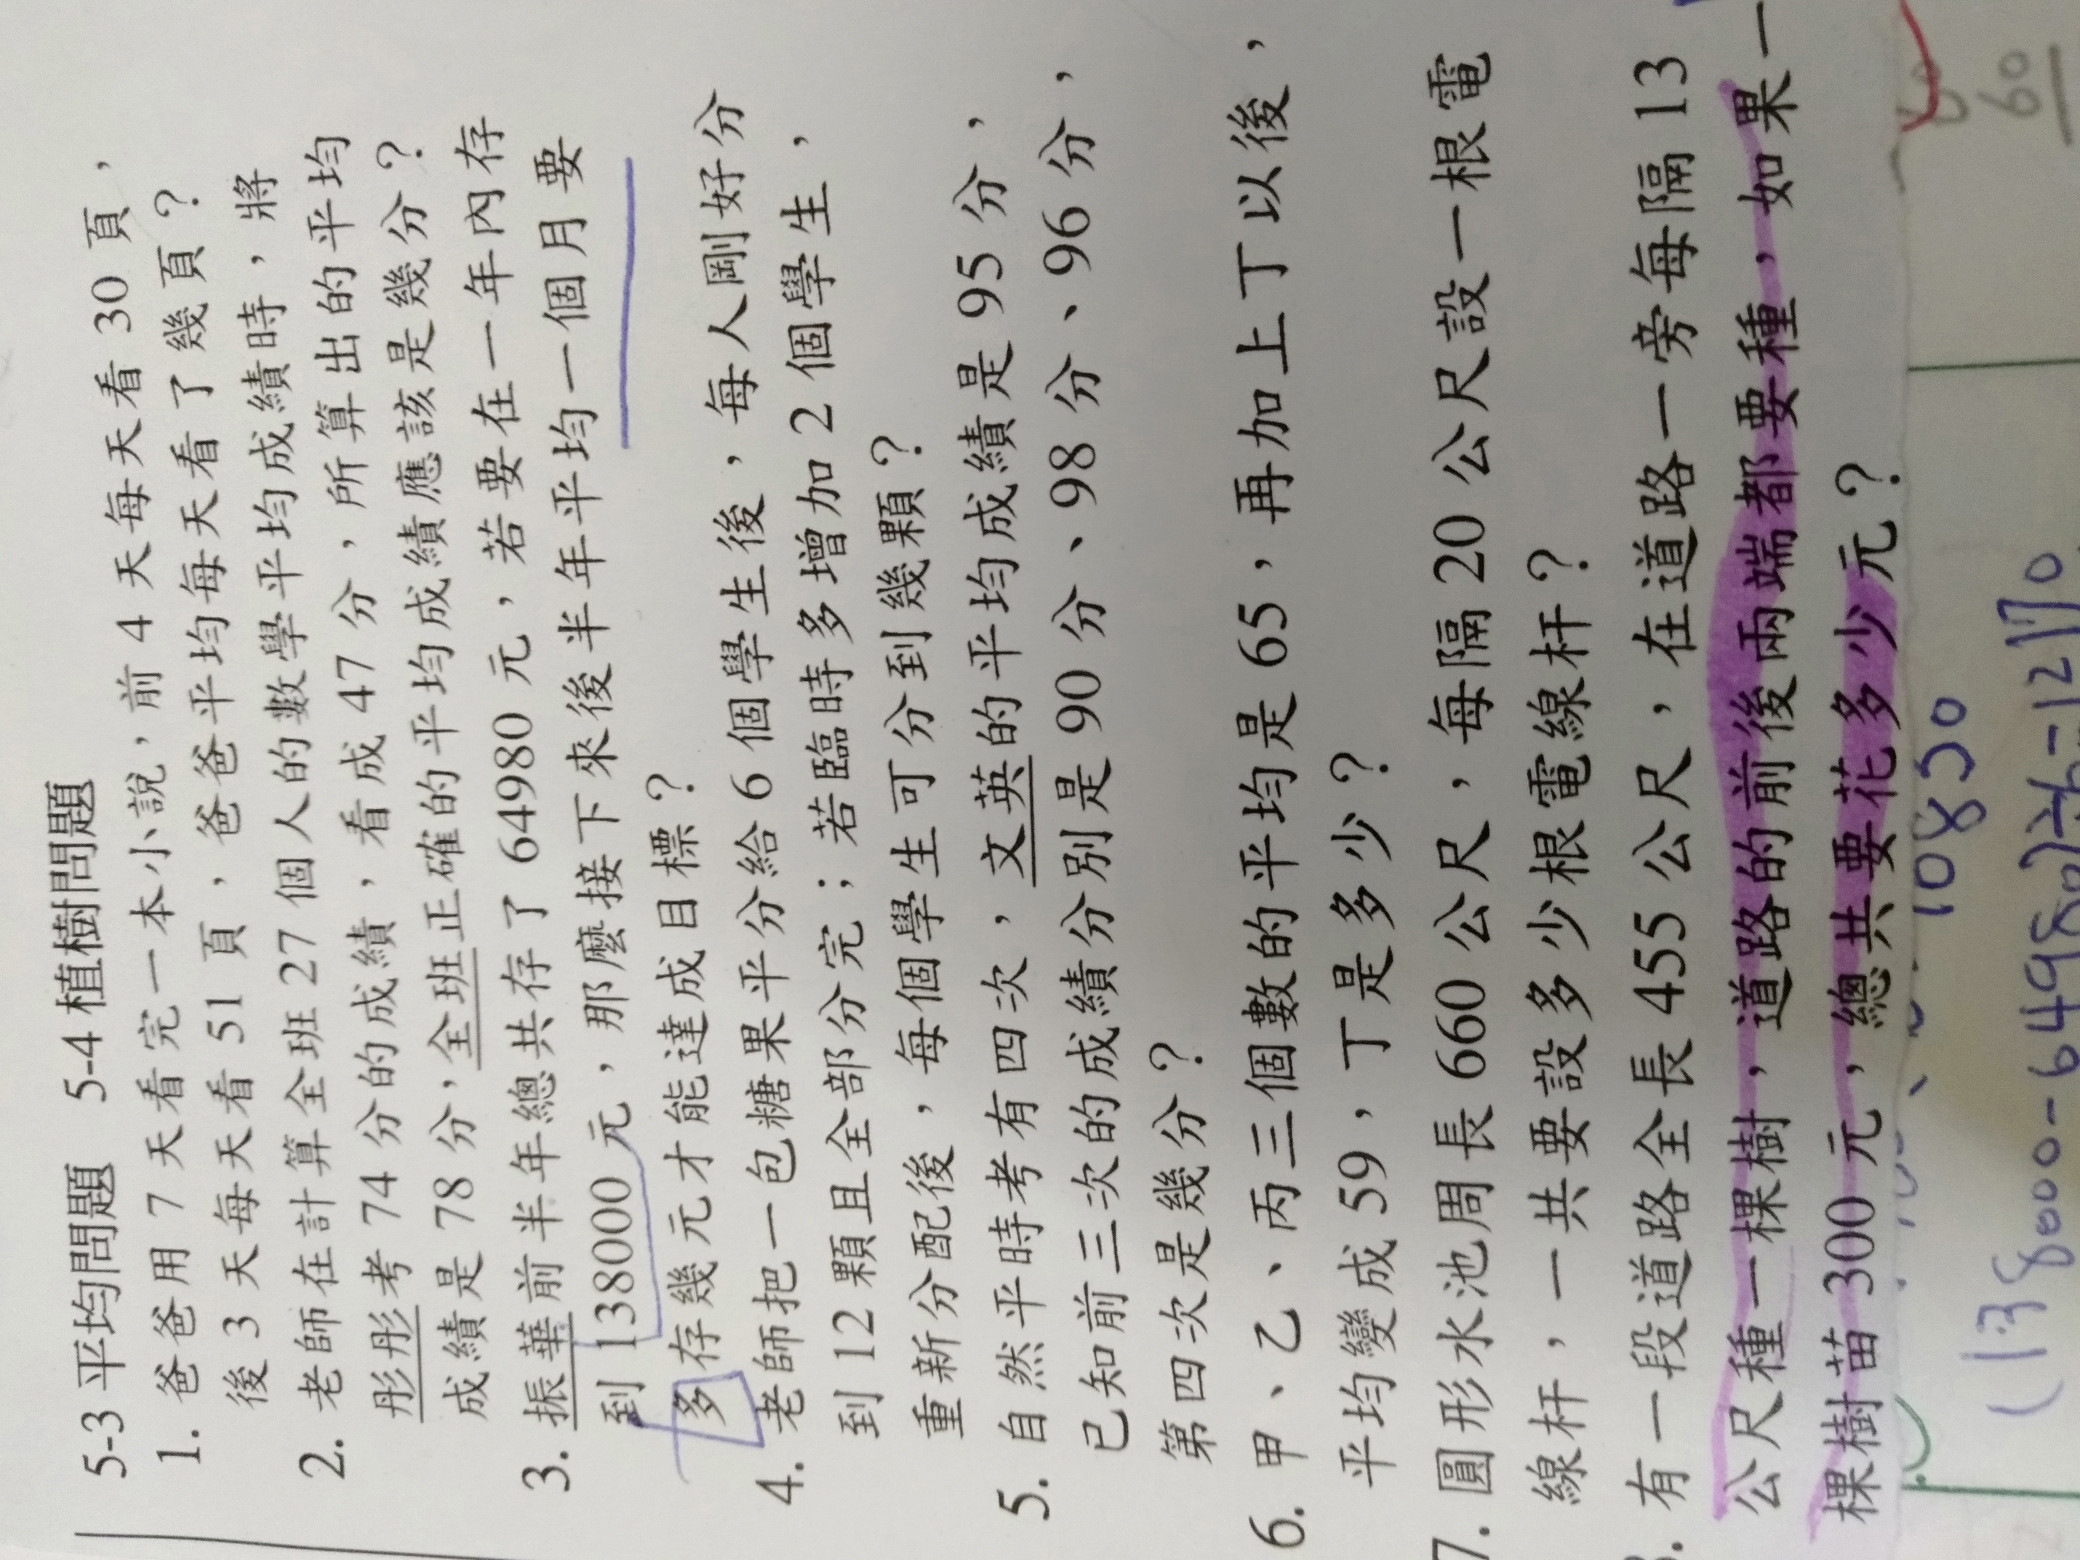 5-3 平均問題 5-4 植樹問題
1. 爸爸用 7 天看完一本小說，前 4 天每天看 30 頁，
後 3 天每天看 51 頁，爸爸平均每天看了幾頁？
2. 老師在計算全班 27 個人的數學平均成績時，將
彤彤考 74 分的成績，看成 47 分，所算出的平均
成績是 78 分，全班正確的平均成績應該是幾分？
3. 振華前半年總共存了 64980 元，若要在一年內存
到 138000 元，那麼接下來後半年平均一個月要
多存幾元才能達成目標？
4. 老師把一包糖果平分給 6 個學生後，每人剛好分
到 12 顆且全部分完；若臨時多增加 2 個學生，
重新分配後，每個學生可分到幾顆？
5. 自然平時考有四次，文英的平均成績是 95 分，
已知前三次的成績分別是 90 分、98 分、96 分，
第四次是幾分？
6. 甲、乙、丙三個數的平均是 65，再加上丁以後，
平均變成 59，丁是多少？
7. 圓形水池周長 660 公尺，每隔 20 公尺設一根電
線杆，一共要設多少根電線杆？
有一段道路全長 455 公尺，在道路一旁每隔 13
公尺種一棵樹，道路的前後兩端都要種，如果一
棵樹苗 300 元，總共要花多少元？
10830
(138000-64980)÷6=12170
60